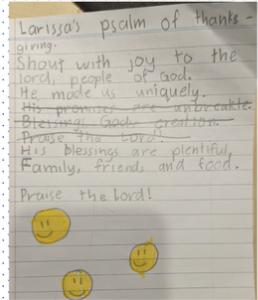 Larissa's psalm of thanks-
giving.
Shout with joy to the
lord, people of God.
He made us uniquely.
His promises are unbreakable.
Blessings God's creation.
Praise the Lord!
His blessings are plentiful,
Family, friends, and food.
Praise the Lord!